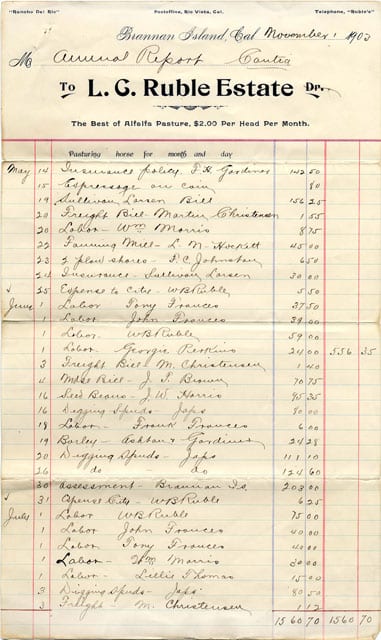 "Rancho Del Rio" Postoffice, Rio Vista, Cal. Telephone, "Ruble's"
Brannan Island, Cal November 1 1903
M Annual Report Contra
To L. C. Ruble Estate Dr.
The Best of Alfalfa Pasture, $2.00 Per Head Per Month.
Pasturing horse for month and day
May 14 Insurance policy. F. H. Gardiner 142 50
15 Expressage on coin 80
19 Sullivan Larsen Bill 156 25
20 Freight Bill Martin Christensen 1 55
20 Labor - Wm Morris 8 75
22 Fanning Mill - L. N. Hockett 45 00
23 2 plow shares - F. C. Johnston 6 50
24 Insurance - Sullivan Larsen 30 00
25 Expense to City - W B Ruble 5 50
June 1 Labor Tony Frances 37 50
1 Labor John Frances 39 00
1 Labor W B Ruble 59 00
1 Labor Georgie Perkins 24 00 556 35
3 Freight Bill M. Christensen 1 40
4 Mdse Bill - J. P. Brown 70 75
16 Seed Beans - J. W. Harris 95 35
16 Digging Spuds - Japs 80 00
18 Labor - Frank Frances 6 00
19 Barley - Ashton & Gardiner 24 28
20 Digging Spuds - Japs 111 10
26 do - do 124 60
30 Assessment - Brannan Is. 203 00
31 Expense City - W B Ruble 6 25
July 1 Labor W B Ruble 75 00
1 Labor John Frances 40 00
1 Labor Tony Frances 40 00
1 Labor Wm Morris 30 00
1 Labor - Lillie Thomas 15 00
3 Digging Spuds - Japs 80 50
3 Freight - M. Christensen 1 12
1560 70 1560 70